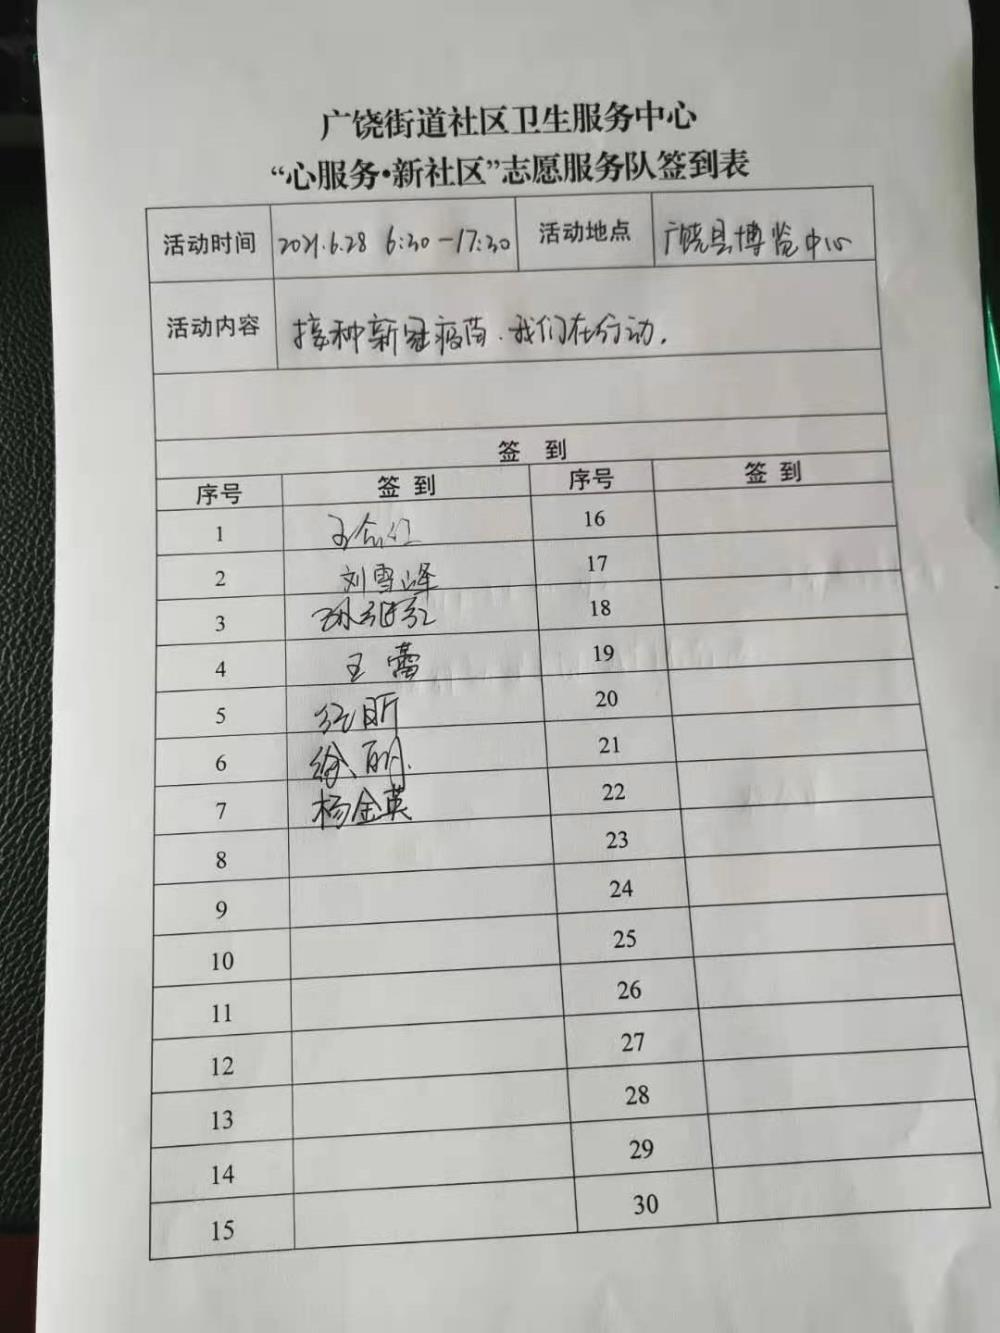 广饶街道社区卫生服务中心
“心服务•新社区”志愿服务队签到表
活动时间 2021.6.28 6:30-17:30 活动地点 广饶县博览中心
活动内容 接种新冠疫苗.我们在行动.
签 到
序号 签 到 序号 签 到
1 16
2 刘雪峰 17
3 18
4 王蕾 19
5 20
6 徐丽 21
7 杨金英 22
8 23
9 24
10 25
11 26
12 27
13 28
14 29
15 30